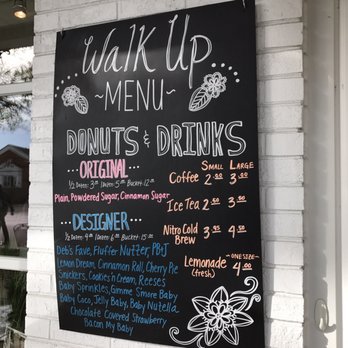 Walk Up
~MENU~
DONUTS & DRINKS
ORIGINAL
1/2 Dozen: 3.00 Dozen: 5.00 Bucket: 12.00
Plain, Powdered Sugar, Cinnamon Sugar
DESIGNER
1/2 Dozen: 4.00 Dozen: 6.00 Bucket: 15.00
Deb's Fave, Fluffer Nutter, PB+J
Lemon Dream, Cinnamon Roll, Cherry Pie
Snickers, Cookies n Cream, Reeses
Baby Sprinkles, Gimme Smore Baby
Baby Coco, Jelly Baby, Baby Nutella
Chocolate Covered Strawberry
Bacon My Baby
SMALL LARGE
Coffee 2.50 3.00
Ice Tea 2.50 3.50
Nitro Cold Brew 3.95 4.50
Lemonade (fresh) ~ONE SIZE~ 4.00